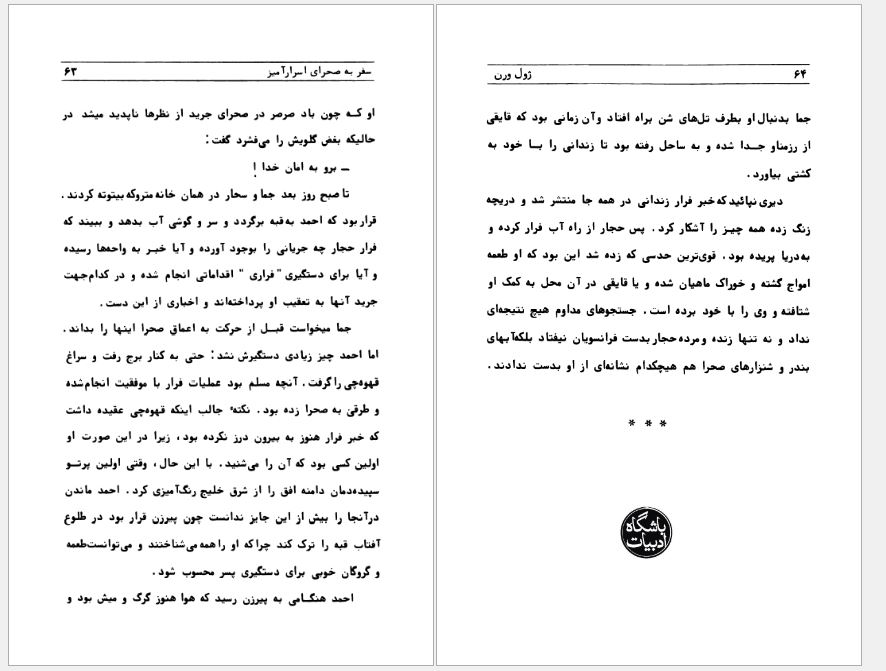 سفر به صحرای اسرارآمیز ۶۳
او که چون باد صرصر در صحرای جرید از نظرها ناپدید میشد در
حالیکه بغض گلویش را می‌فشرد گفت:
ــ برو به امان خدا!
تا صبح روز بعد جما و سحار در همان خانه متروکه بیتوته کردند.
قرار بود که احمد به قبه برگردد و سر و گوشی آب بدهد و ببیند که
فرار حجار چه جریانی را بوجود آورده و آیا خبر به واحه‌ها رسیده
و آیا برای دستگیری "فراری" اقداماتی انجام شده و در کدام جهت
جرید آنها به تعقیب او پرداخته‌اند و اخباری از این دست.
جما میخواست قبل از حرکت به اعماق صحرا اینها را بداند.
اما احمد چیز زیادی دستگیرش نشد: حتی به کنار برج رفت و سراغ
قهوه‌چی را گرفت. آنچه مسلم بود عملیات فرار با موفقیت انجام شده
و طرقی به صحرا زده بود. نکتهٔ جالب اینکه قهوه‌چی عقیده داشت
که خبر فرار هنوز به بیرون درز نکرده بود، زیرا در این صورت او
اولین کسی بود که آن را می‌شنید. با این حال، وقتی اولین پرتو
سپیده‌دمان دامنه افق را از شرق خلیج رنگ‌آمیزی کرد. احمد ماندن
در آنجا را بیش از این جایز ندانست چون پیرزن قرار بود در طلوع
آفتاب قبه را ترک کند چرا که او را همه می‌شناختند و می‌توانست طعمه
و گروگان خوبی برای دستگیری پسر محسوب شود.
احمد هنگامی به پیرزن رسید که هوا هنوز گرگ و میش بود و
۶۴ ژول ورن
جما بدنبال او بطرف تل‌های شن براه افتاد و آن زمانی بود که قایقی
از رزمناو جدا شده و به ساحل رفته بود تا زندانی را با خود به
کشتی بیاورد.
دیری نپائید که خبر فرار زندانی در همه جا منتشر شد و دریچه
زنگ زده همه چیز را آشکار کرد. پس حجار از راه آب فرار کرده و
به دریا پریده بود. قوی‌ترین حدسی که زده شد این بود که او طعمه
امواج گشته و خوراک ماهیان شده و یا قایقی در آن محل به کمک او
شتافته و وی را با خود برده است. جستجوهای مداوم هیچ نتیجه‌ای
نداد و نه تنها زنده و مرده حجار بدست فرانسویان نیفتاد بلکه آبهای
بندر و شنزارهای صحرا هم هیچکدام نشانه‌ای از او بدست ندادند.
* * *
باشگاه
ادبیات